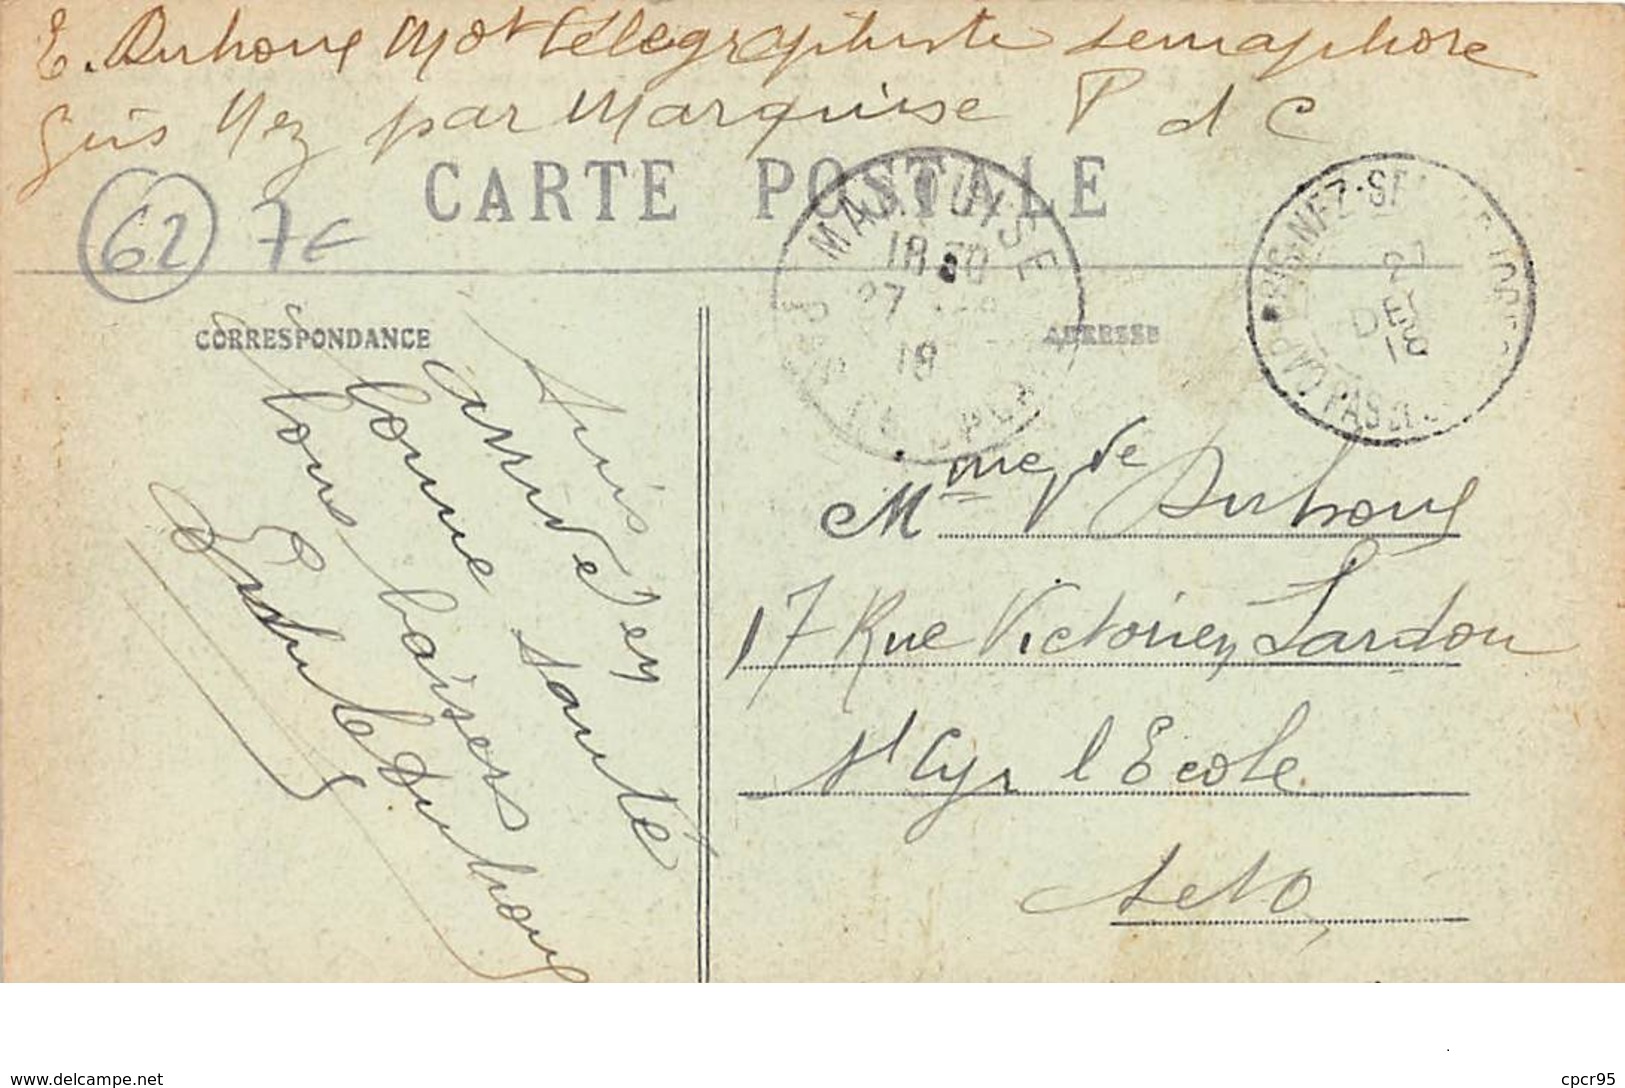 E. Duhoux Mot télégraphiste semaphore
Gris Nez par Marquise P d C
CARTE POSTALE
62 7€
MARQUISE
18 30
27
18
PAS DE CALAIS
CAP-GRIS-NEZ-SEMAPHORE
27
DEC
18
PAS DE CALAIS
CORRESPONDANCE
ADRESSE
Suis
arrivé en
bonne santé
bons baisers
Duhoux
Mme Duhoux
17 Rue Victorien Sardou
St Cyr l'Ecole
S et O
www.delcampe.net
cpcr95